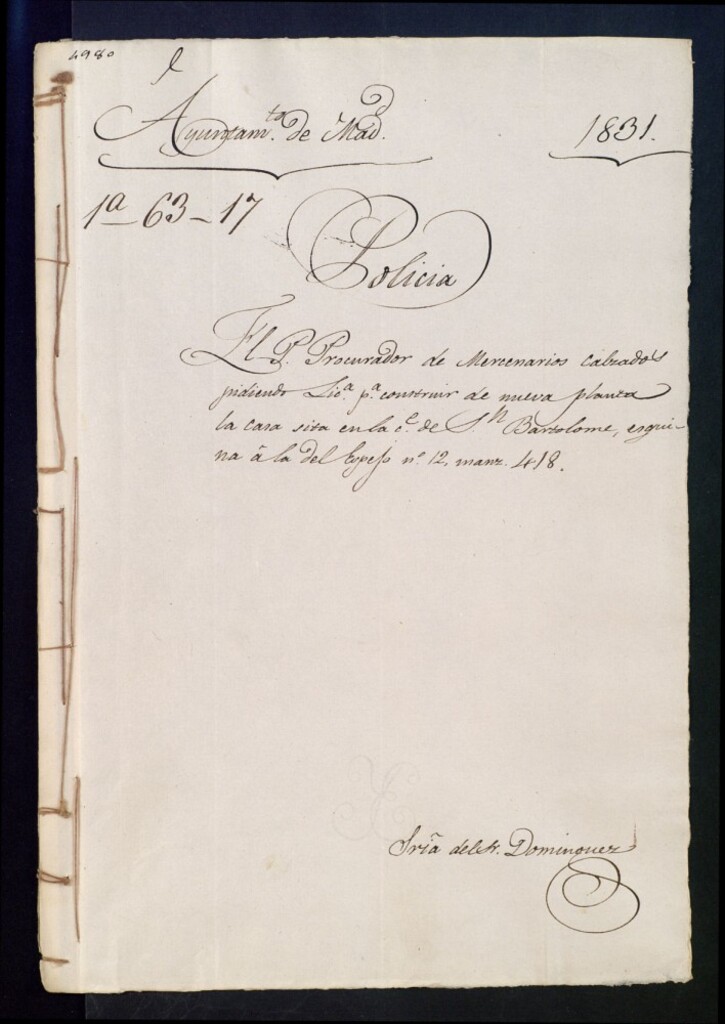 4980
Ayuntam.to de Mad.d
1831.
1a-63-17
Policia
El P. Procurador de Mercenarios calzados
pidiendo Lic.a p.a construir de nueva planta
la casa sita en la c.e de Sn Bartolome, esqui-
na á la del n.º 12, manz. 418.
Sria del Sr. Dominguez